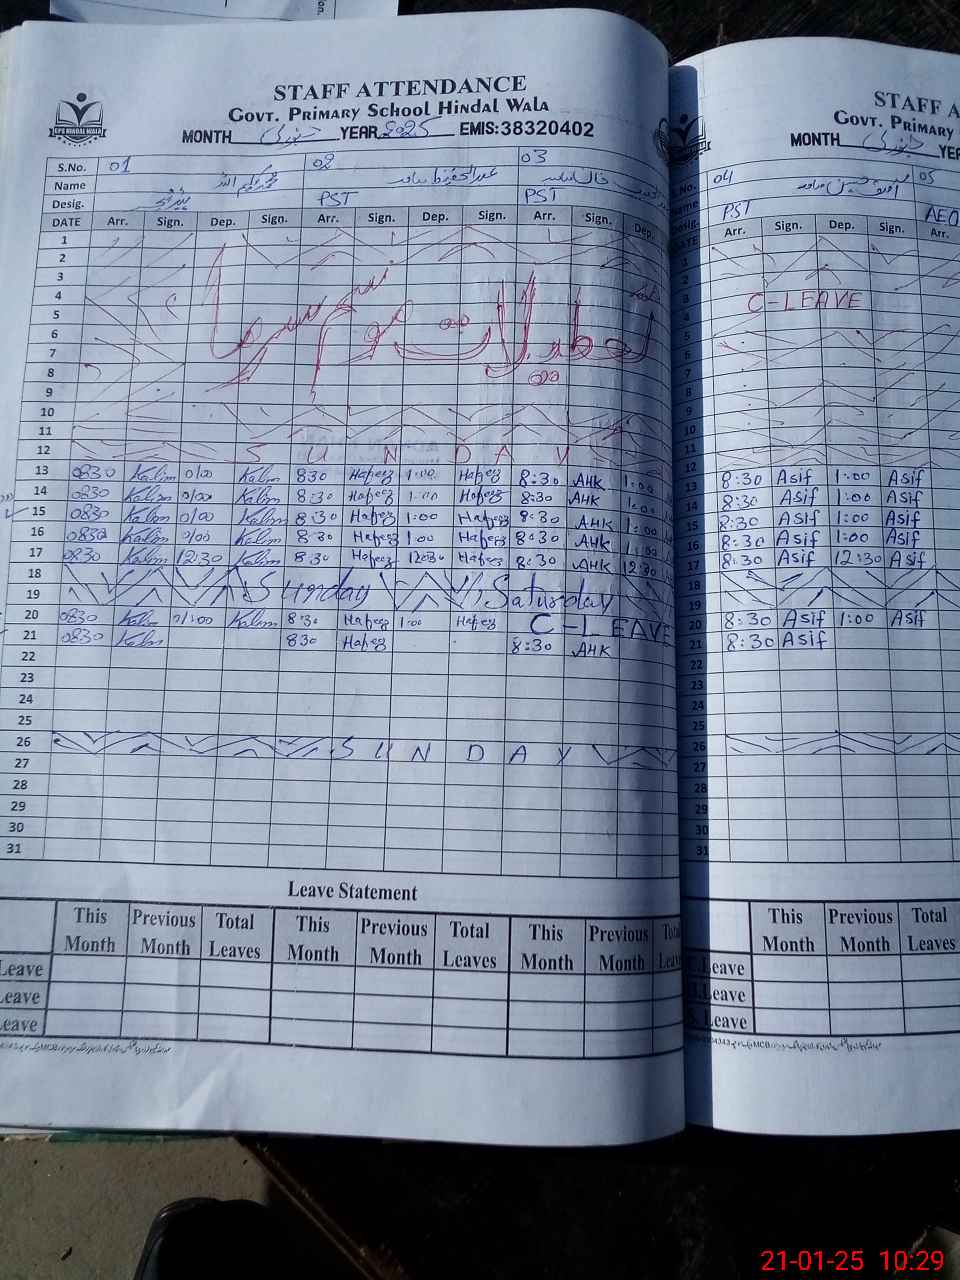 STAFF ATTENDANCE
GOVT. PRIMARY SCHOOL HINDAL WALA
GPS HINDAL WALA
MONTH جنوری YEAR 2025 EMIS:38320402
S.No. 01 02 03
Name محمد کلیم اللہ عبدالحفیظ صاحب
Desig. PST PST
DATE Arr. Sign. Dep. Sign. Arr. Sign. Dep. Sign. Arr. Sign. Dep.
1
2
3
4
5
6
7
8
9
تعطیلات موسم سرما
10
11
12 S U N D A Y
13 0830 Kalim 0/00 Kalim 830 Hafeez 1:00 Hafeez 8:30 AHK 1:00
14 0830 Kalim 0/00 Kalim 8:30 Hafeez 1:00 Hafeez 8:30 AHK 1:00
15 0830 Kalim 0/00 Kalim 8:30 Hafeez 1:00 Hafeez 8:30 AHK 1:00
16 0830 Kalim 0/00 Kalim 8:30 Hafeez 1:00 Hafeez 8:30 AHK 1:00
17 0830 Kalim 12:30 Kalim 8:30 Hafeez 12:30 Hafeez 8:30 AHK 12:30
18
19 Sunday Saturday
20 0830 Kalim 0/:00 Kalim 8:30 Hafeez 1:00 Hafeez C-LEAVE
21 0830 Kalim 830 Hafeez 8:30 AHK
22
23
24
25
26 S U N D A Y
27
28
29
30
31
Leave Statement
This Month Previous Month Total Leaves This Month Previous Month Total Leaves This Month Previous Month
Leave
Leave
Leave
STAFF A
GOVT. PRIMARY
MONTH جنوری YE
S.No. 04 05
Name
Desig. PST AEO
DATE Arr. Sign. Dep. Sign. Arr.
1
2
3 C-LEAVE
4
5
6
7
8
9
10
11
12
13 8:30 Asif 1:00 Asif
14 8:30 Asif 1:00 Asif
15 8:30 Asif 1:00 Asif
16 8:30 Asif 1:00 Asif
17 8:30 Asif 12:30 Asif
18
19
20 8:30 Asif 1:00 Asif
21 8:30 Asif
22
23
24
25
26
27
28
29
30
31
This Month Previous Month Total Leaves
Leave
Leave
S. Leave
21-01-25 10:29